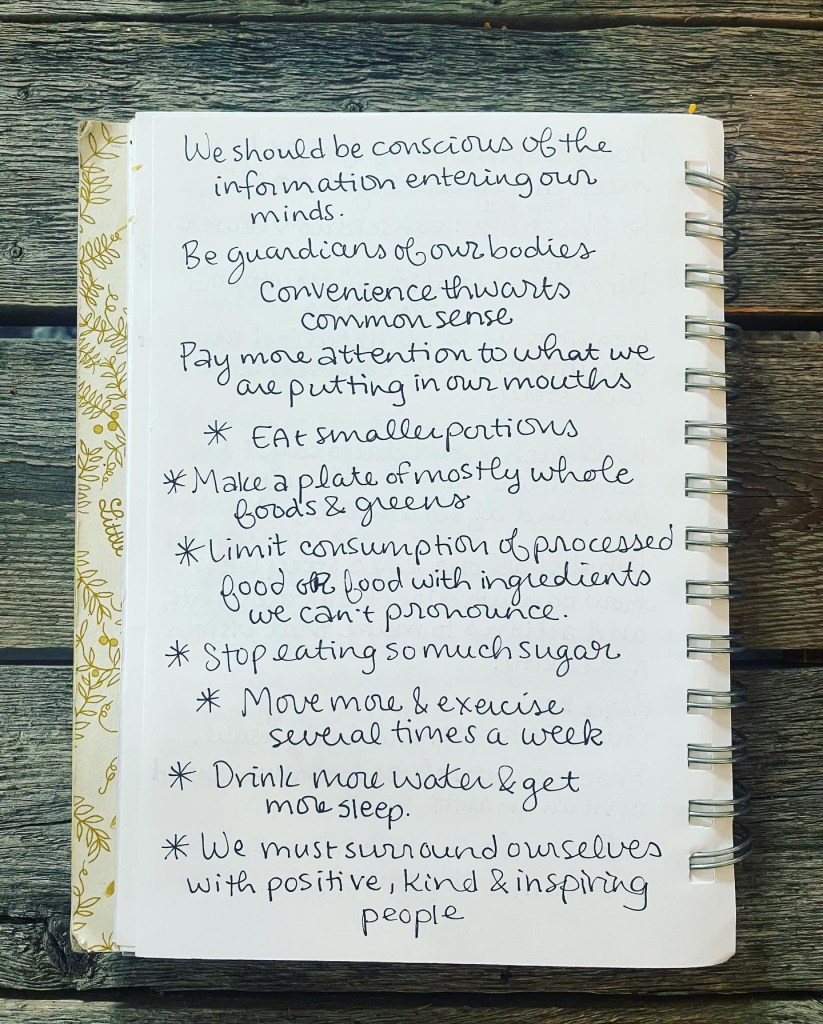 We should be conscious of the
information entering our
minds.
Be guardians of our bodies
Convenience thwarts
common sense
Pay more attention to what we
are putting in our mouths
* EAt smaller portions
* Make a plate of mostly whole
foods & greens
* Limit consumption of processed
food or food with ingredients
we can't pronounce.
* Stop eating so much sugar
* Move more & exercise
several times a week
* Drink more water & get
more sleep.
* We must surround ourselves
with positive, kind & inspiring
people
Little